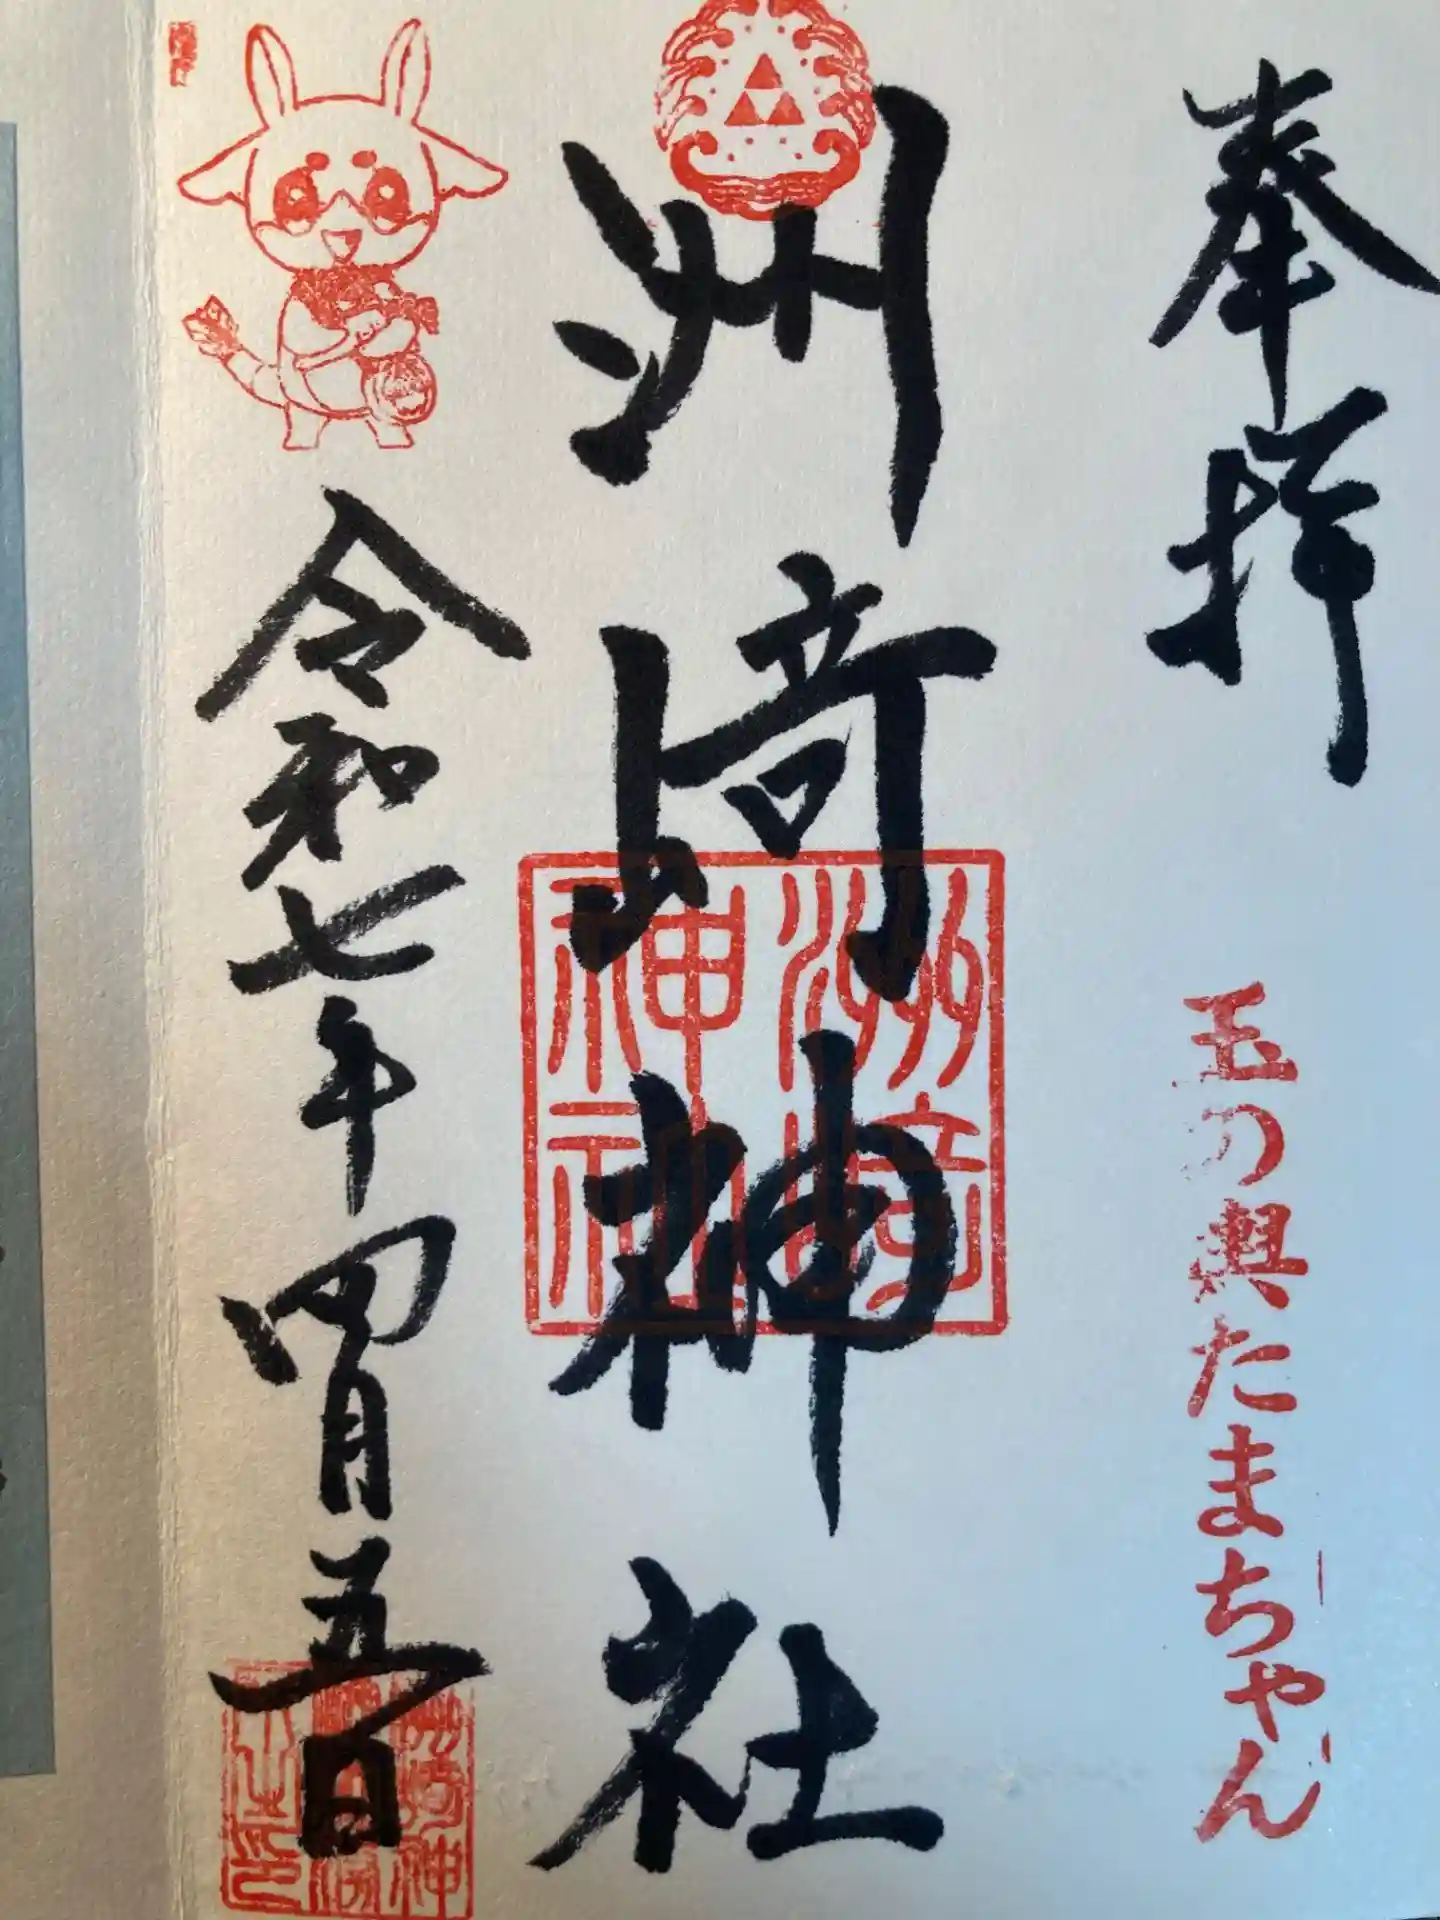 奉拝
玉の輿たまちゃん
洲崎神社
洲崎神社
令和七年四月五日